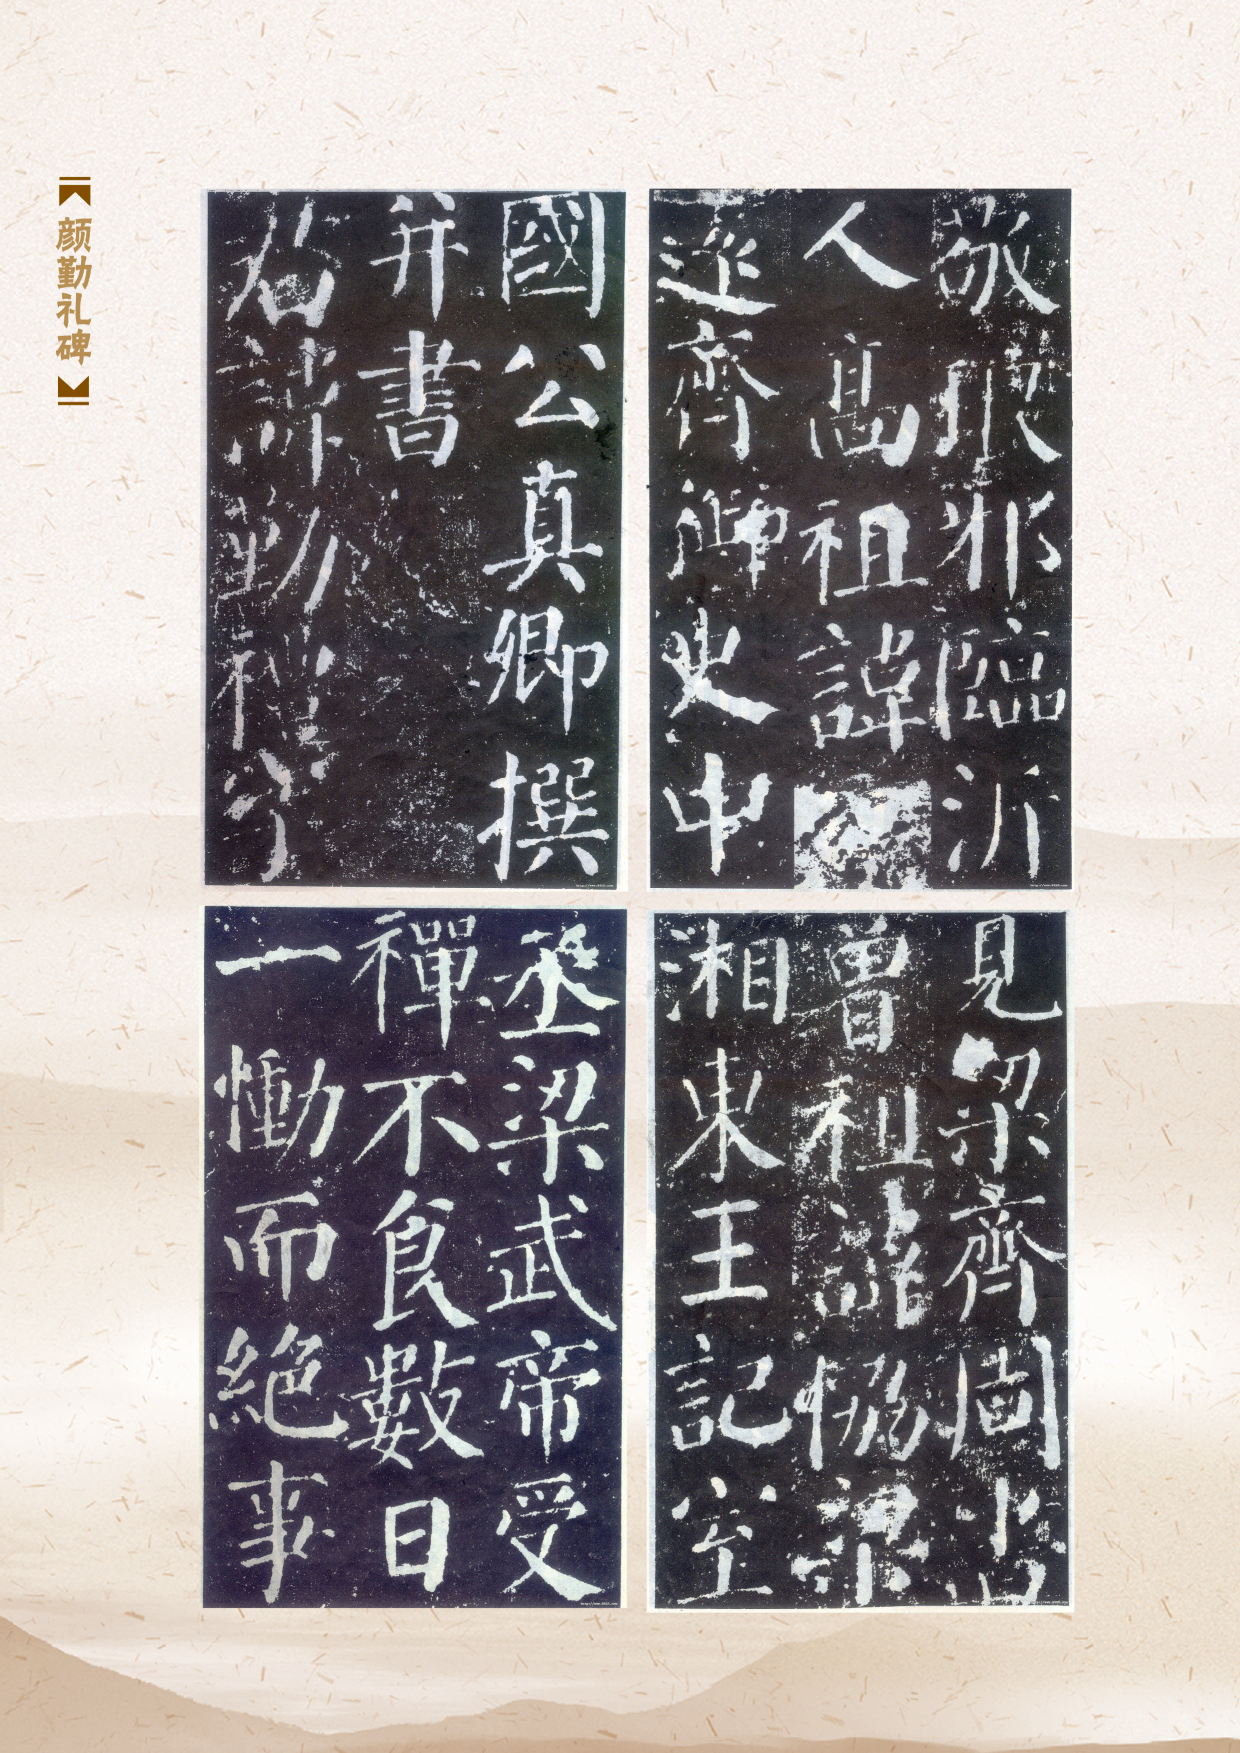 颜勤礼碑
國公真卿撰
并書
君諱勤禮字
敬琅邪臨沂
人高祖諱
遠齊御史中
丞梁武帝受
禪不食數日
一慟而絕事
見梁齊周書
曾祖諱協梁
湘東王記室